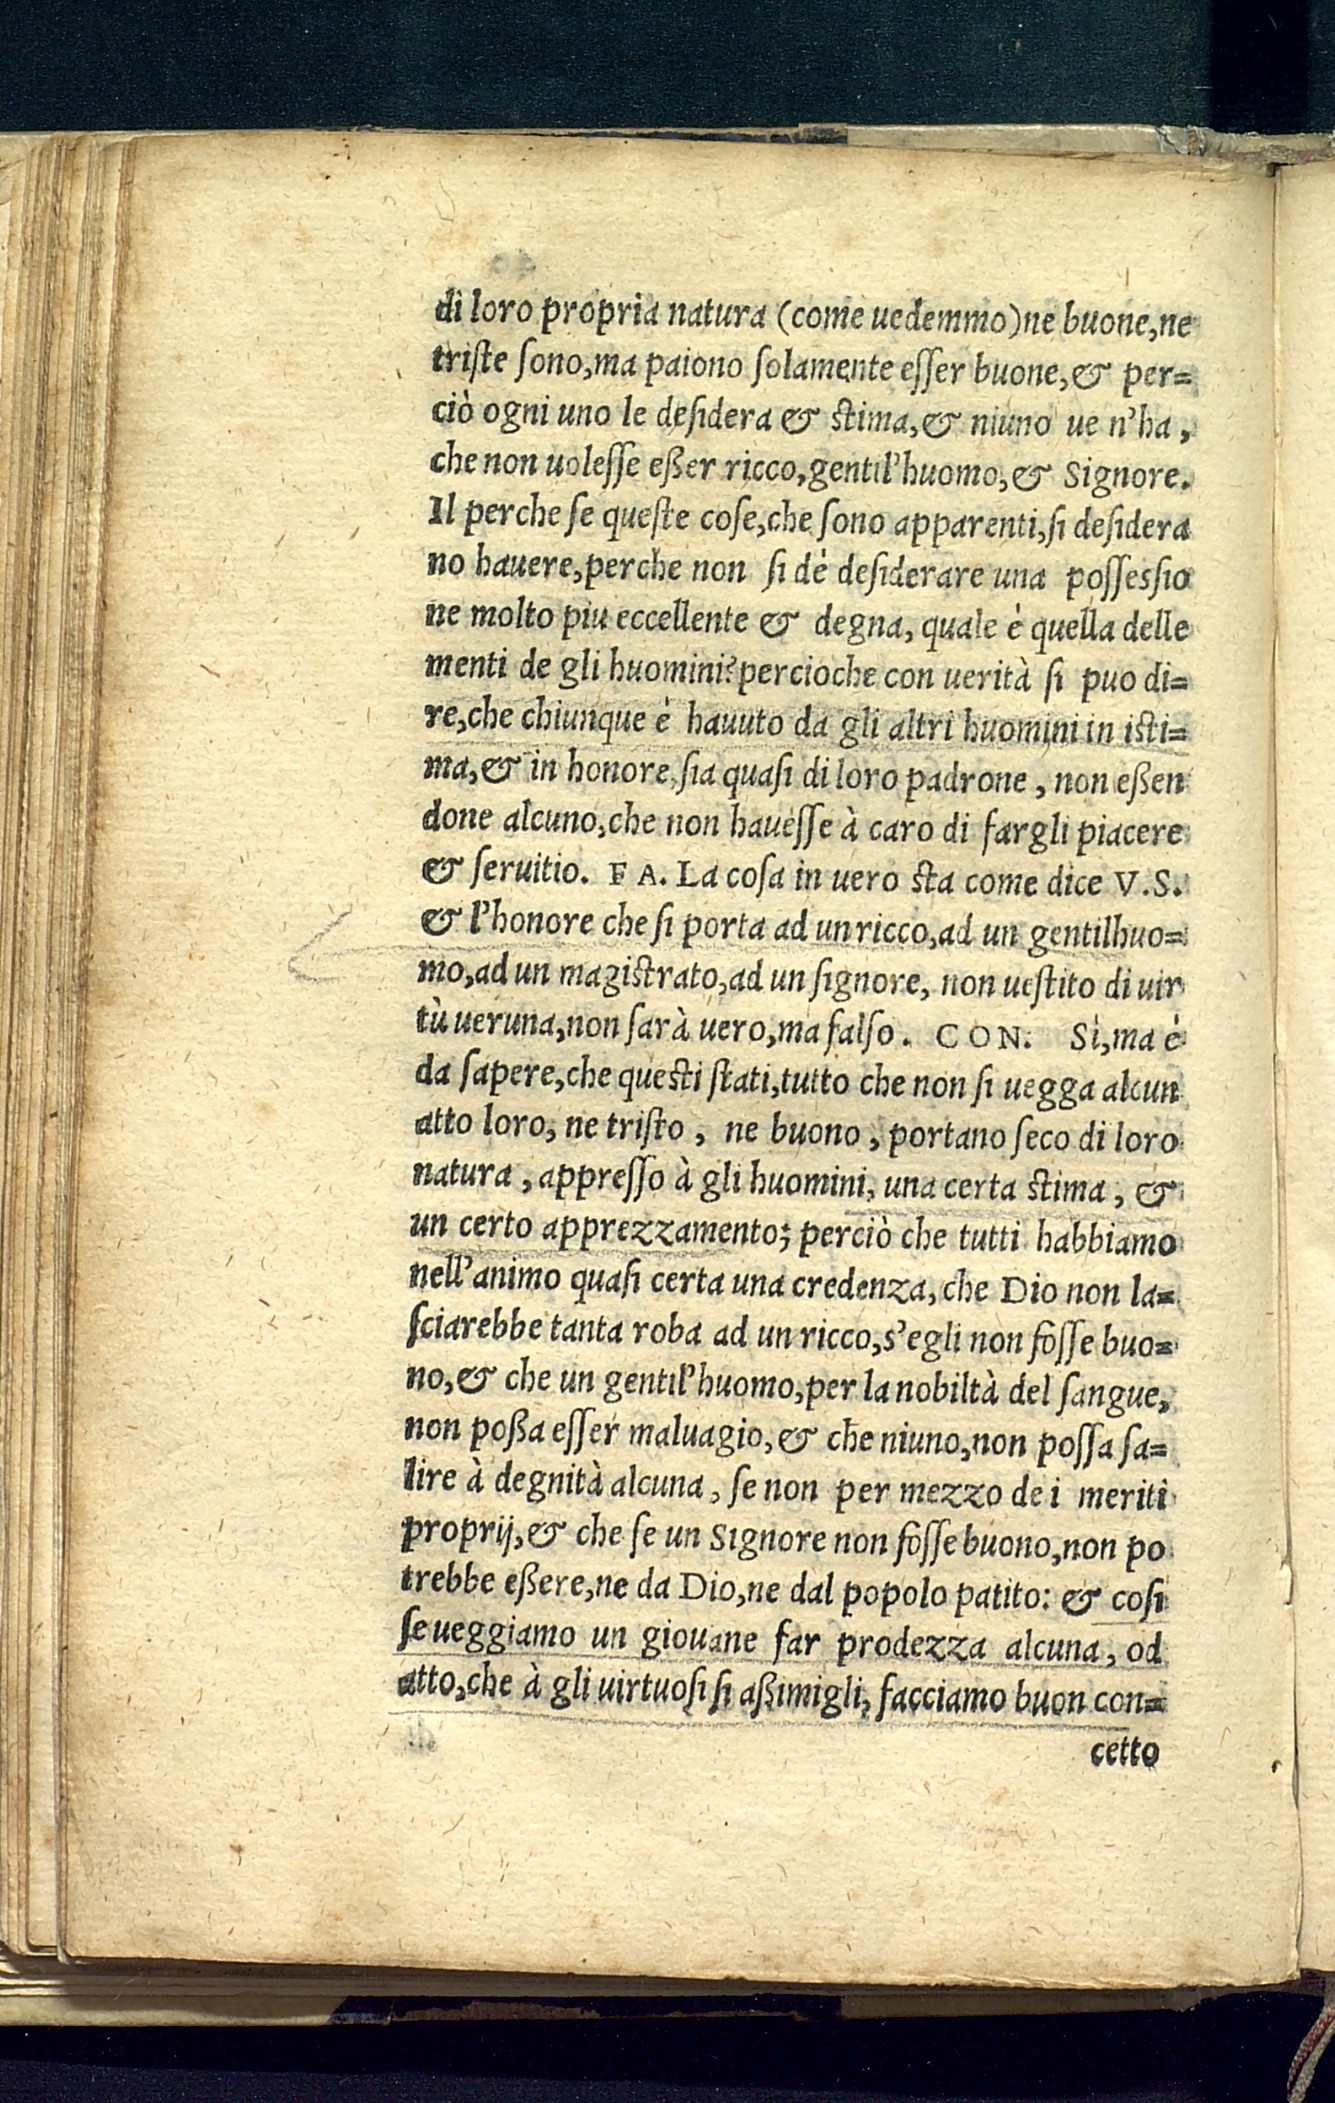 di loro propria natura (come uedemmo)ne buone,ne
triſte ſono,ma paiono ſolamente eſſer buone,& per=
ciò ogni uno le deſidera & ſtima,& niuno ue n'ha,
che non uoleſſe eßer ricco,gentil'huomo,& Signore.
Il perche ſe queſte coſe,che ſono apparenti,ſi deſidera
no hauere,perche non ſi dè deſiderare una poſſeſsio
ne molto piu eccellente & degna, quale è quella delle
menti de gli huomini?percioche con uerità ſi puo di=
re,che chiunque è hauuto da gli altri huomini in iſti=
ma,& in honore,ſia quaſi di loro padrone, non eßen
done alcuno,che non haueſſe à caro di fargli piacere
& ſeruitio. FA. La coſa in uero ſta come dice V.S.
& l'honore che ſi porta ad un ricco,ad un gentilhuo=
mo,ad un magiſtrato,ad un ſignore, non ueſtito di uir
tù ueruna,non ſarà uero,ma falſo. CON. Sì,ma è
da ſapere,che queſti ſtati,tutto che non ſi uegga alcun
atto loro, ne triſto, ne buono, portano ſeco di loro
natura, appreſſo à gli huomini, una certa ſtima, &
un certo apprezzamento; perciò che tutti habbiamo
nell'animo quaſi certa una credenza, che Dio non la=
ſciarebbe tanta roba ad un ricco,s'egli non foſſe buo=
no,& che un gentil'huomo,per la nobiltà del ſangue,
non poßa eſſer maluagio,& che niuno,non poſſa ſa=
lire à degnità alcuna, ſe non per mezzo de i meriti
proprij,& che ſe un Signore non foſſe buono,non po
trebbe eßere,ne da Dio,ne dal popolo patito: & coſi
ſe ueggiamo un giouane far prodezza alcuna, od
atto,che à gli uirtuoſi ſi aßimigli, facciamo buon con=
cetto